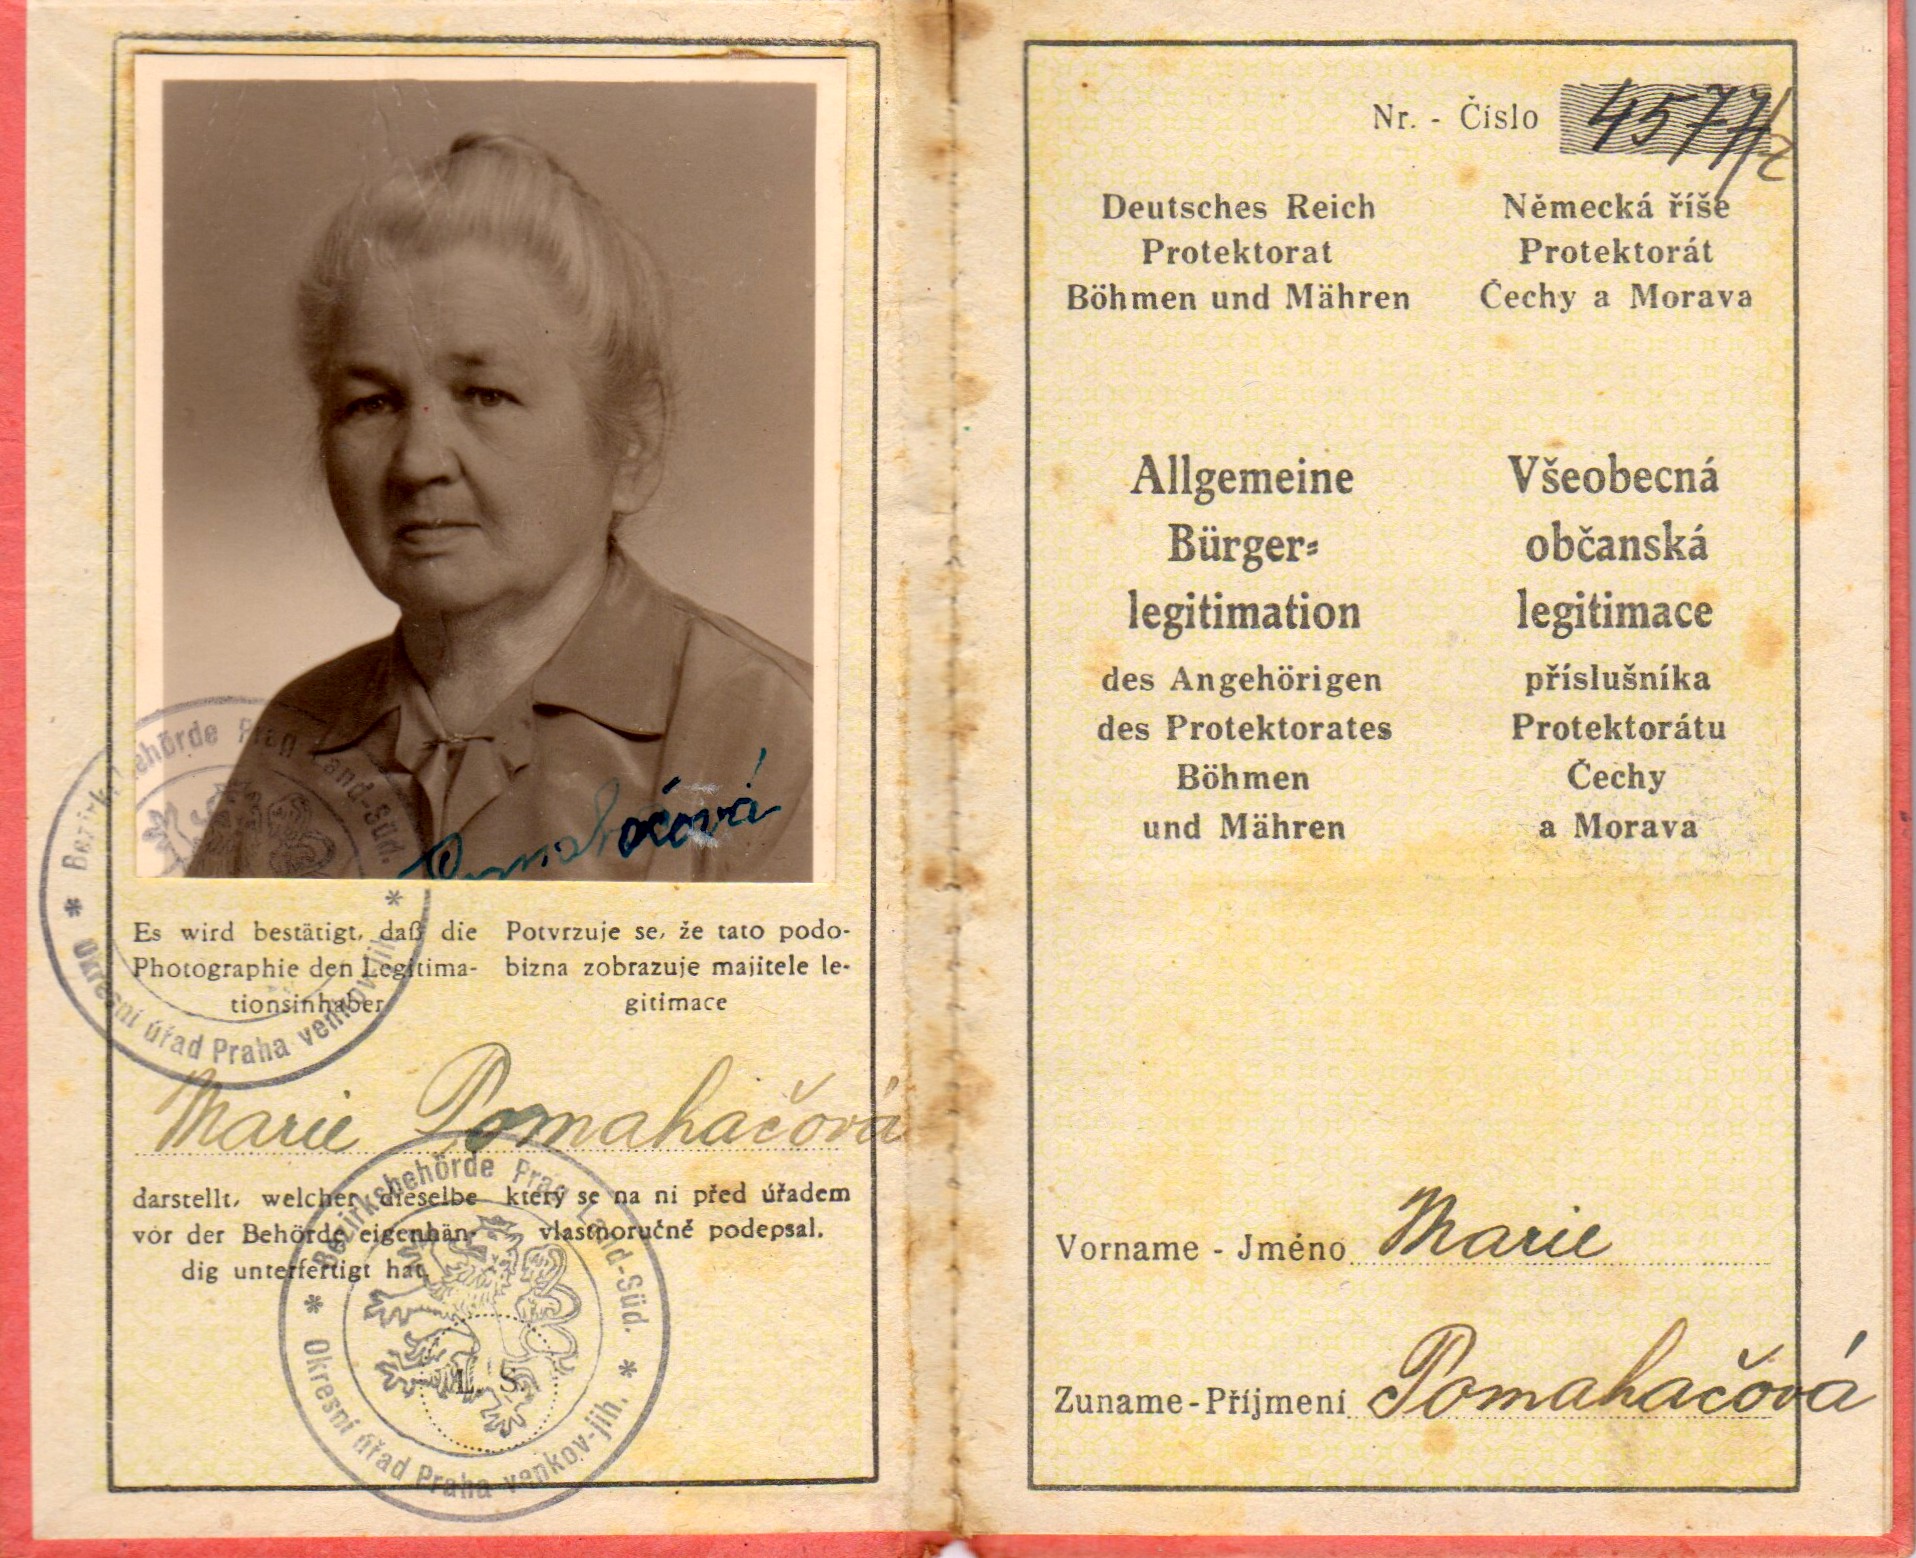 Pomahačová
Bezirksbehörde Prag Land-Süd.
* Okresní úřad Praha venkov-jih. *
Es wird bestätigt, daß die
Photographie den Legitima-
tionsinhaber
Potvrzuje se, že tato podo-
bizna zobrazuje majitele le-
gitimace
Marie Pomahačová
darstellt, welcher dieselbe
vor der Behörde eigenhän-
dig unterfertigt hat.
který se na ni před úřadem
vlastnoručně podepsal.
Bezirksbehörde Prag Land-Süd.
L. S.
* Okresní úřad Praha venkov-jih. *
Nr. - Číslo 4577/
Deutsches Reich
Protektorat
Böhmen und Mähren
Německá říše
Protektorát
Čechy a Morava
Allgemeine
Bürger-
legitimation
des Angehörigen
des Protektorates
Böhmen
und Mähren
Všeobecná
občanská
legitimace
příslušníka
Protektorátu
Čechy
a Morava
Vorname - Jméno Marie
Zuname-Příjmení Pomahačová